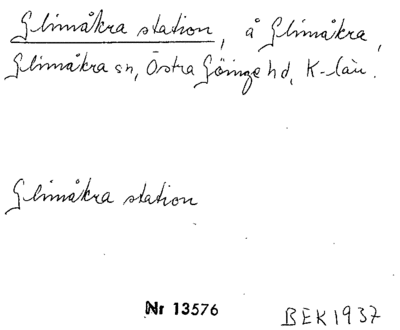 Glimåkra station, å Glimåkra,
Glimåkra sn, Östra Göinge hd, K-län.
Glimåkra station
Nr 13576
BEK1937